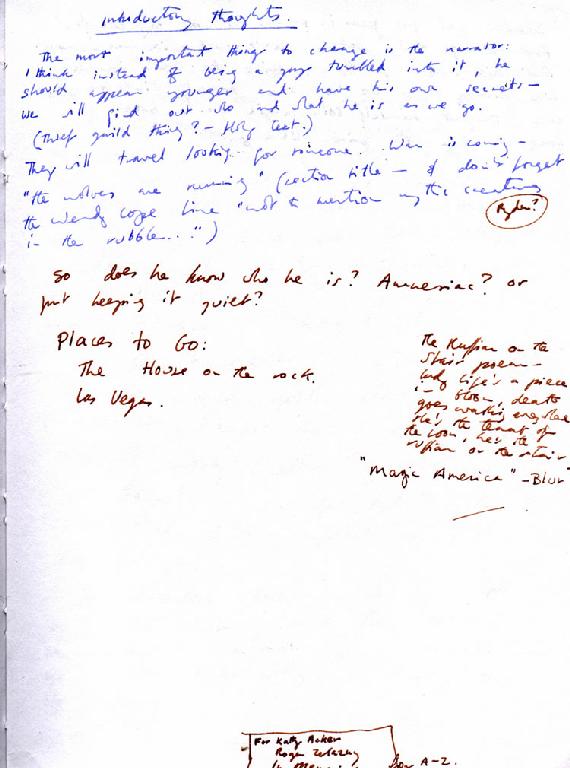 introductory thoughts.
The most important thing to change is the narrator:
I think instead of being a guy tumbled into it, he
should appear younger and have his own secrets –
we will find out who and what he is as we go.
(Thief guild thing? – Holy text.)
They will travel looking for someone. War is coming –
"the wolves are running" (section title – & don't forget
the wendy cope line "not to mention the creatures
in the rubble...")
Ryder?
So does he know who he is? Amnesiac? or
just keeping it quiet?
Places to Go:
The House on the rock.
Las Vegas.
The Ruffian on the
Stair poem –
lady life's a piece
in bloom, death
goes everywhere
she's the tenant of
the room, he's the
ruffian on the stair
"Magic America" – Blur
For Kathy Acker
Roger Zelazny
In Memoriam
A–Z.